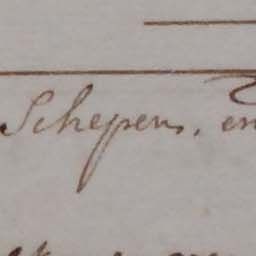 Schepens, en